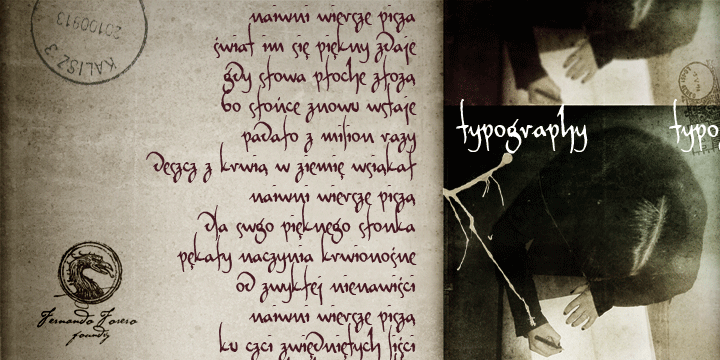 naiwni wiersze piszą
świat im się piękny zdaje
gdy słowa płoche złożą
bo słońce znowu wstaje
padało z milion razy
deszcz z krwią w ziemię wsiąkał
naiwni wiersze piszą
dla swgo pięknego słonka
pękały naczynia krwionośne
od zwykłej nienawiści
naiwni wiersze piszą
ku czci zwiędniętych liści
KALISZ 3
20100913
Fernando Forero
foundry
typography
typo